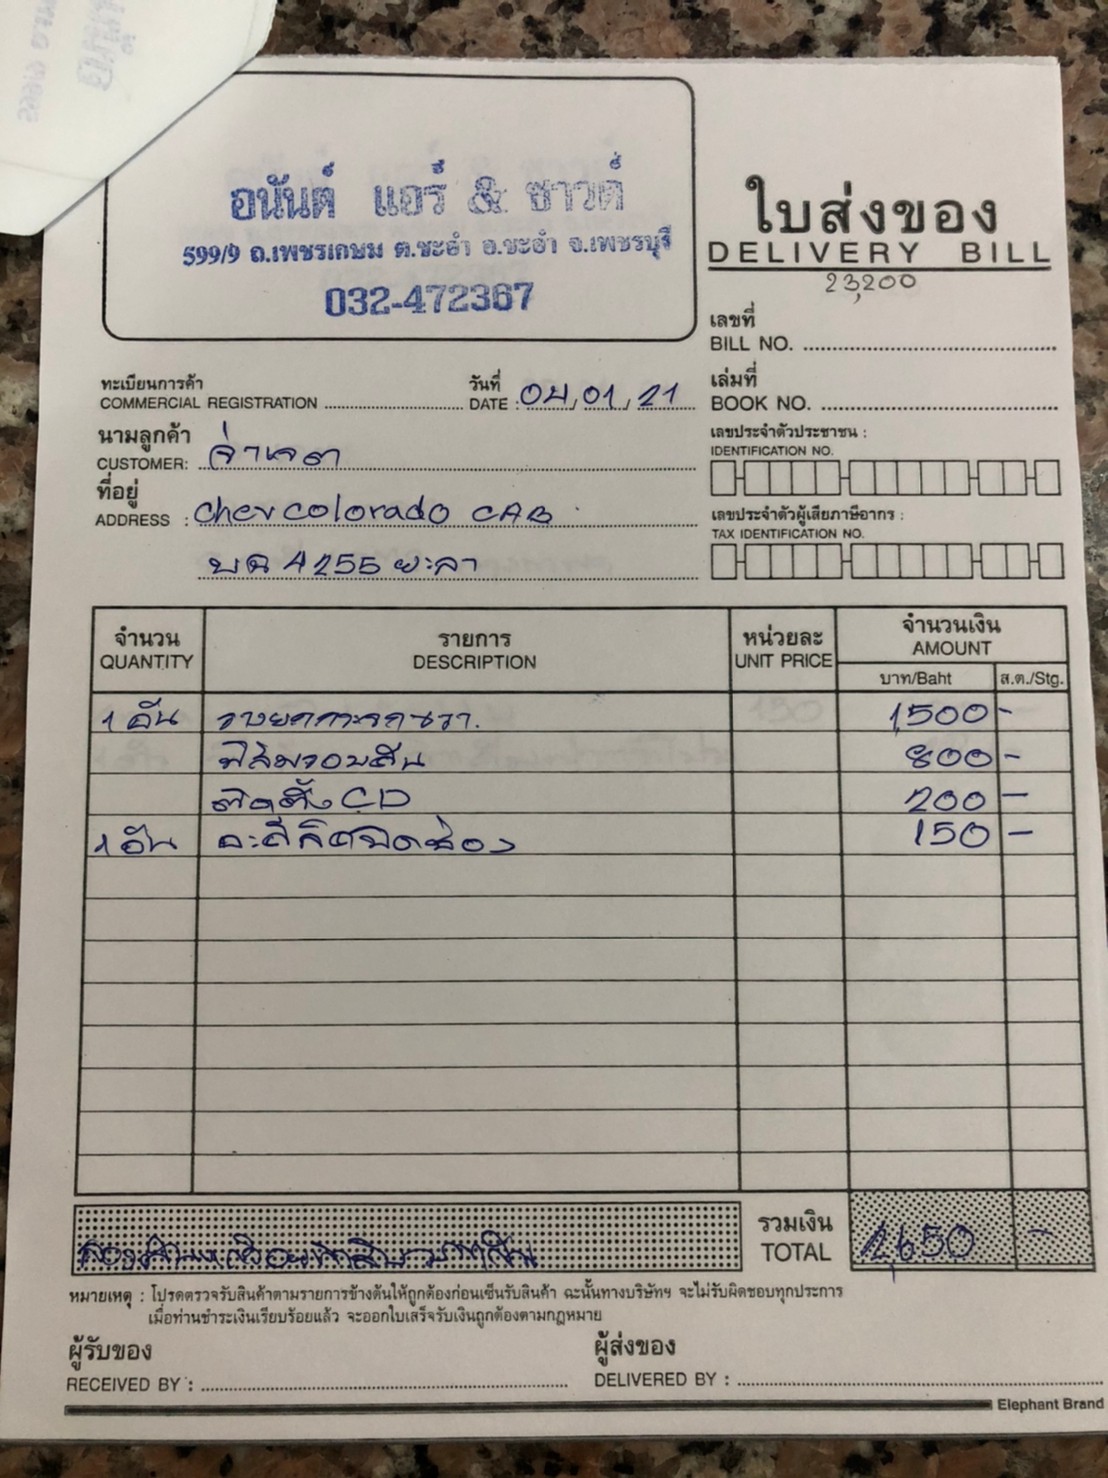 อนันต์ แอร์ & ซาวด์
599/9 ถ.เพชรเกษม ต.ชะอำ อ.ชะอำ จ.เพชรบุรี
032-472367
ใบส่งของ
DELIVERY BILL
23,200
เลขที่
BILL NO.
ทะเบียนการค้า
COMMERCIAL REGISTRATION
วันที่
DATE : 04, 01, 21
เล่มที่
BOOK NO.
นามลูกค้า
CUSTOMER: จ่าเจต
เลขประจำตัวประชาชน :
IDENTIFICATION NO.
ที่อยู่
ADDRESS : Chev colorado CAB
เลขประจำตัวผู้เสียภาษีอากร :
TAX IDENTIFICATION NO.
บฉ 4255 ยะลา
จำนวน รายการ หน่วยละ จำนวนเงิน
QUANTITY DESCRIPTION UNIT PRICE AMOUNT
บาท/Baht ส.ต./Stg.
1 อัน 1,500 -
ฟิล์มรอบคัน 800 -
ติดตั้ง CD 200 -
1 อัน 150 -
สองพันหกร้อยห้าสิบบาทถ้วน
รวมเงิน
TOTAL 2,650 -
หมายเหตุ : โปรดตรวจรับสินค้าตามรายการข้างต้นให้ถูกต้องก่อนเซ็นรับสินค้า ฉะนั้นทางบริษัทฯ จะไม่รับผิดชอบทุกประการ
เมื่อท่านชำระเงินเรียบร้อยแล้ว จะออกใบเสร็จรับเงินถูกต้องตามกฎหมาย
ผู้รับของ
RECEIVED BY :
ผู้ส่งของ
DELIVERED BY :
Elephant Brand